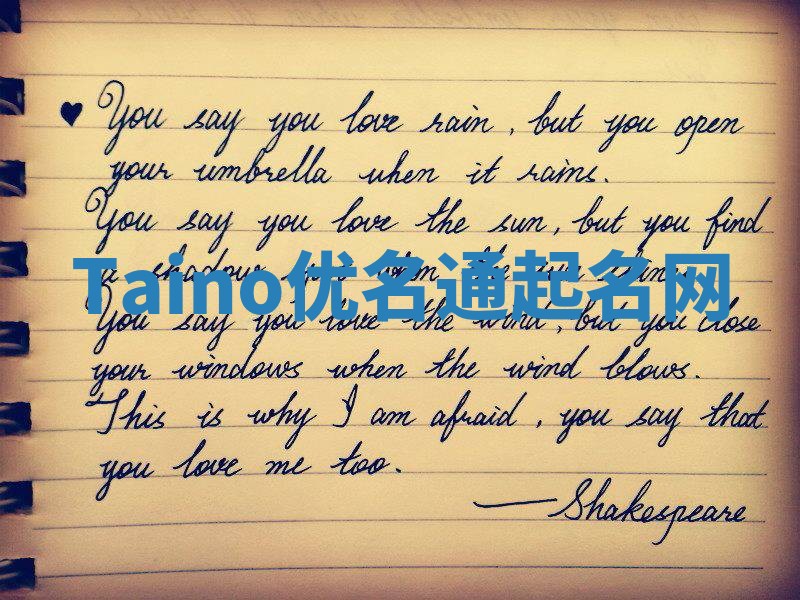 ♥ You say you love rain, but you open
your umbrella when it rains.
You say you love the sun, but you find
a shadow when the sun shines
Taino优名通起名网
You say you love the wind, but you close
your windows when the wind blows.
This is why I am afraid, you say that
you love me too.
—Shakespeare